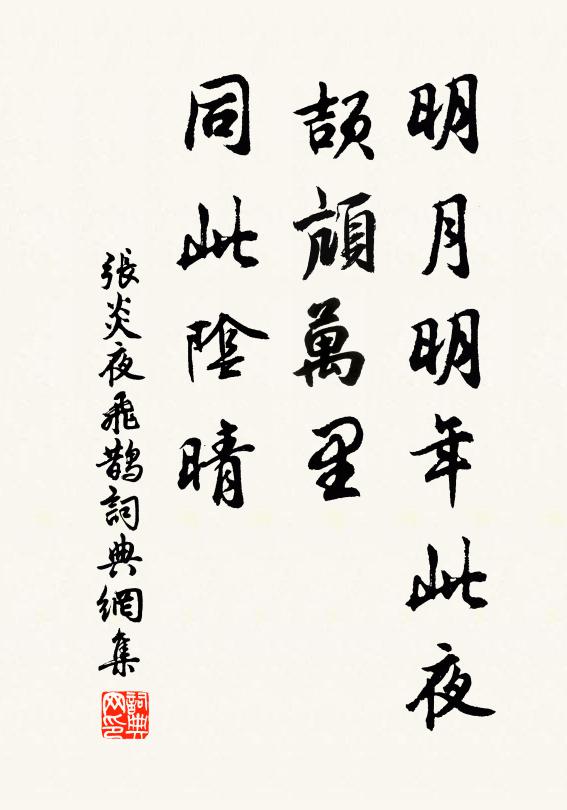 明月明年此夜
頡頏萬里
同此陰晴
張炎夜飛鵲詞典網集
詞典网印